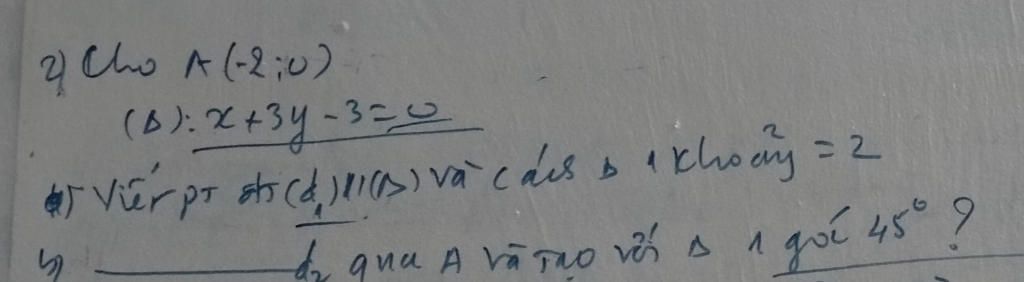 2) Cho A(-2;0)
(Δ): x+3y-3=0
a) Viết pt đt (d₁)//(Δ) và cách Δ 1 khoảng = 2
b) ———— d₂ qua A và tạo với Δ 1 góc 45° ?